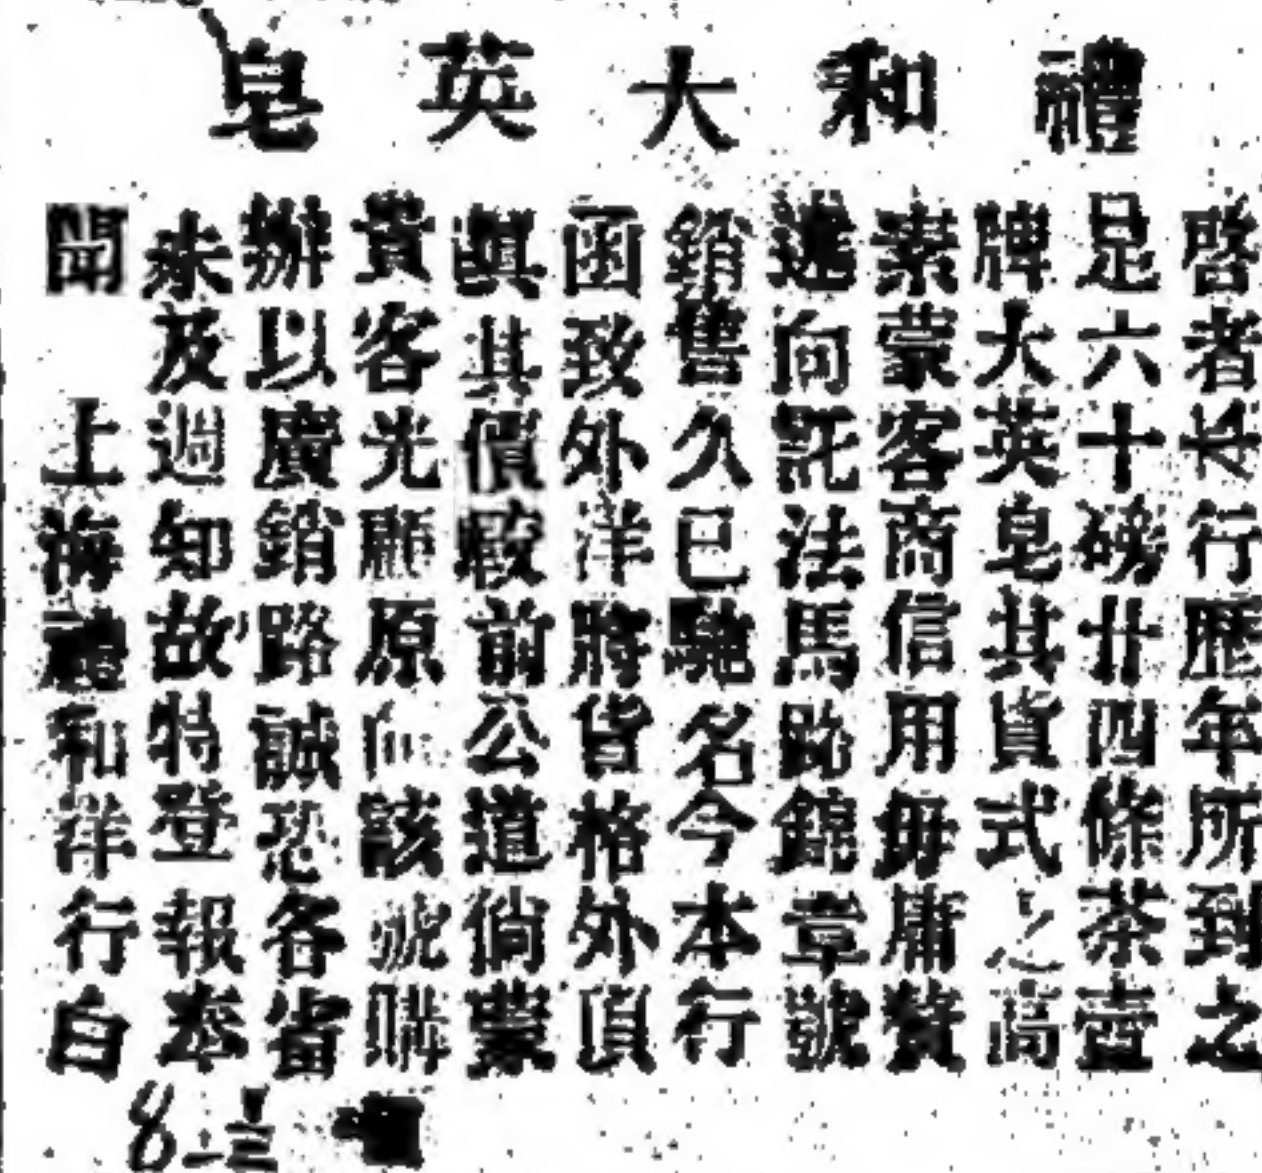 禮和大英皂
啓者本行歷年所到之
足六十磅廿四條茶壺
牌大英皂其貨式之高
素蒙客商信用毋庸贅
述向託法馬路錦章號
銷售久已馳名今本行
函致外洋將貨格外頂
眞其價較前公道倘蒙
貴客光顧原向該號購
辦以廣銷路誠恐各省
未及週知故特登報奉
聞 上海禮和洋行白